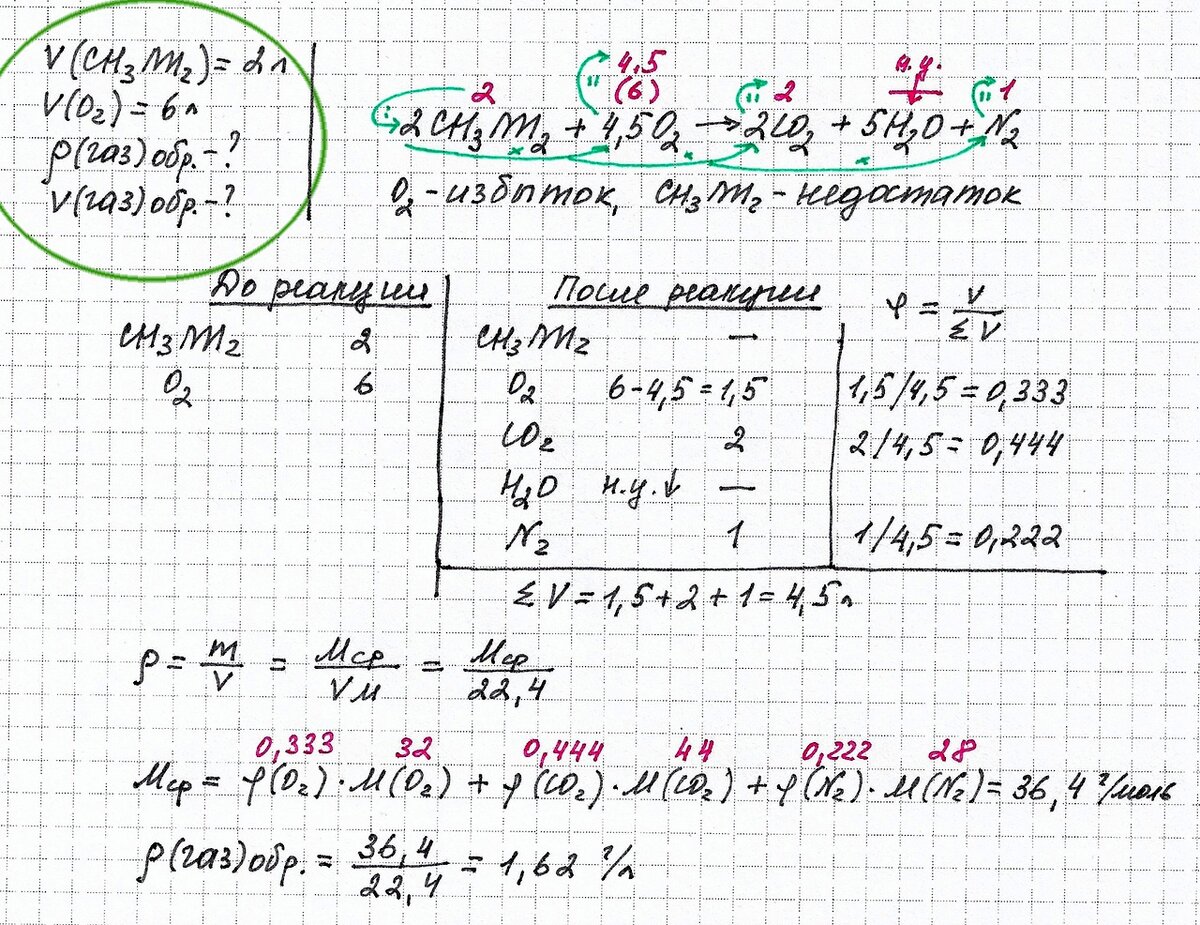 V(CH₃NH₂) = 2 л
V(O₂) = 6 л
ρ(газ) обр. - ?
V(газ) обр. - ?
4,5
2 (6) 2 н.у. 1
2CH₃NH₂ + 4,5O₂ → 2CO₂ + 5H₂O + N₂
O₂ - избыток, CH₃NH₂ - недостаток
До реакции
CH₃NH₂ 2
O₂ 6
После реакции
CH₃NH₂ —
O₂ 6 - 4,5 = 1,5
CO₂ 2
H₂O н.у.↓ —
N₂ 1
φ = V/ΣV
1,5/4,5 = 0,333
2/4,5 = 0,444
1/4,5 = 0,222
ΣV = 1,5 + 2 + 1 = 4,5 л
ρ = m/V = Mср/Vм = Mср/22,4
0,333 32 0,444 44 0,222 28
Mср = φ(O₂)·M(O₂) + φ(CO₂)·M(CO₂) + φ(N₂)·M(N₂) = 36,4 г/моль
ρ(газ) обр. = 36,4/22,4 = 1,62 г/л